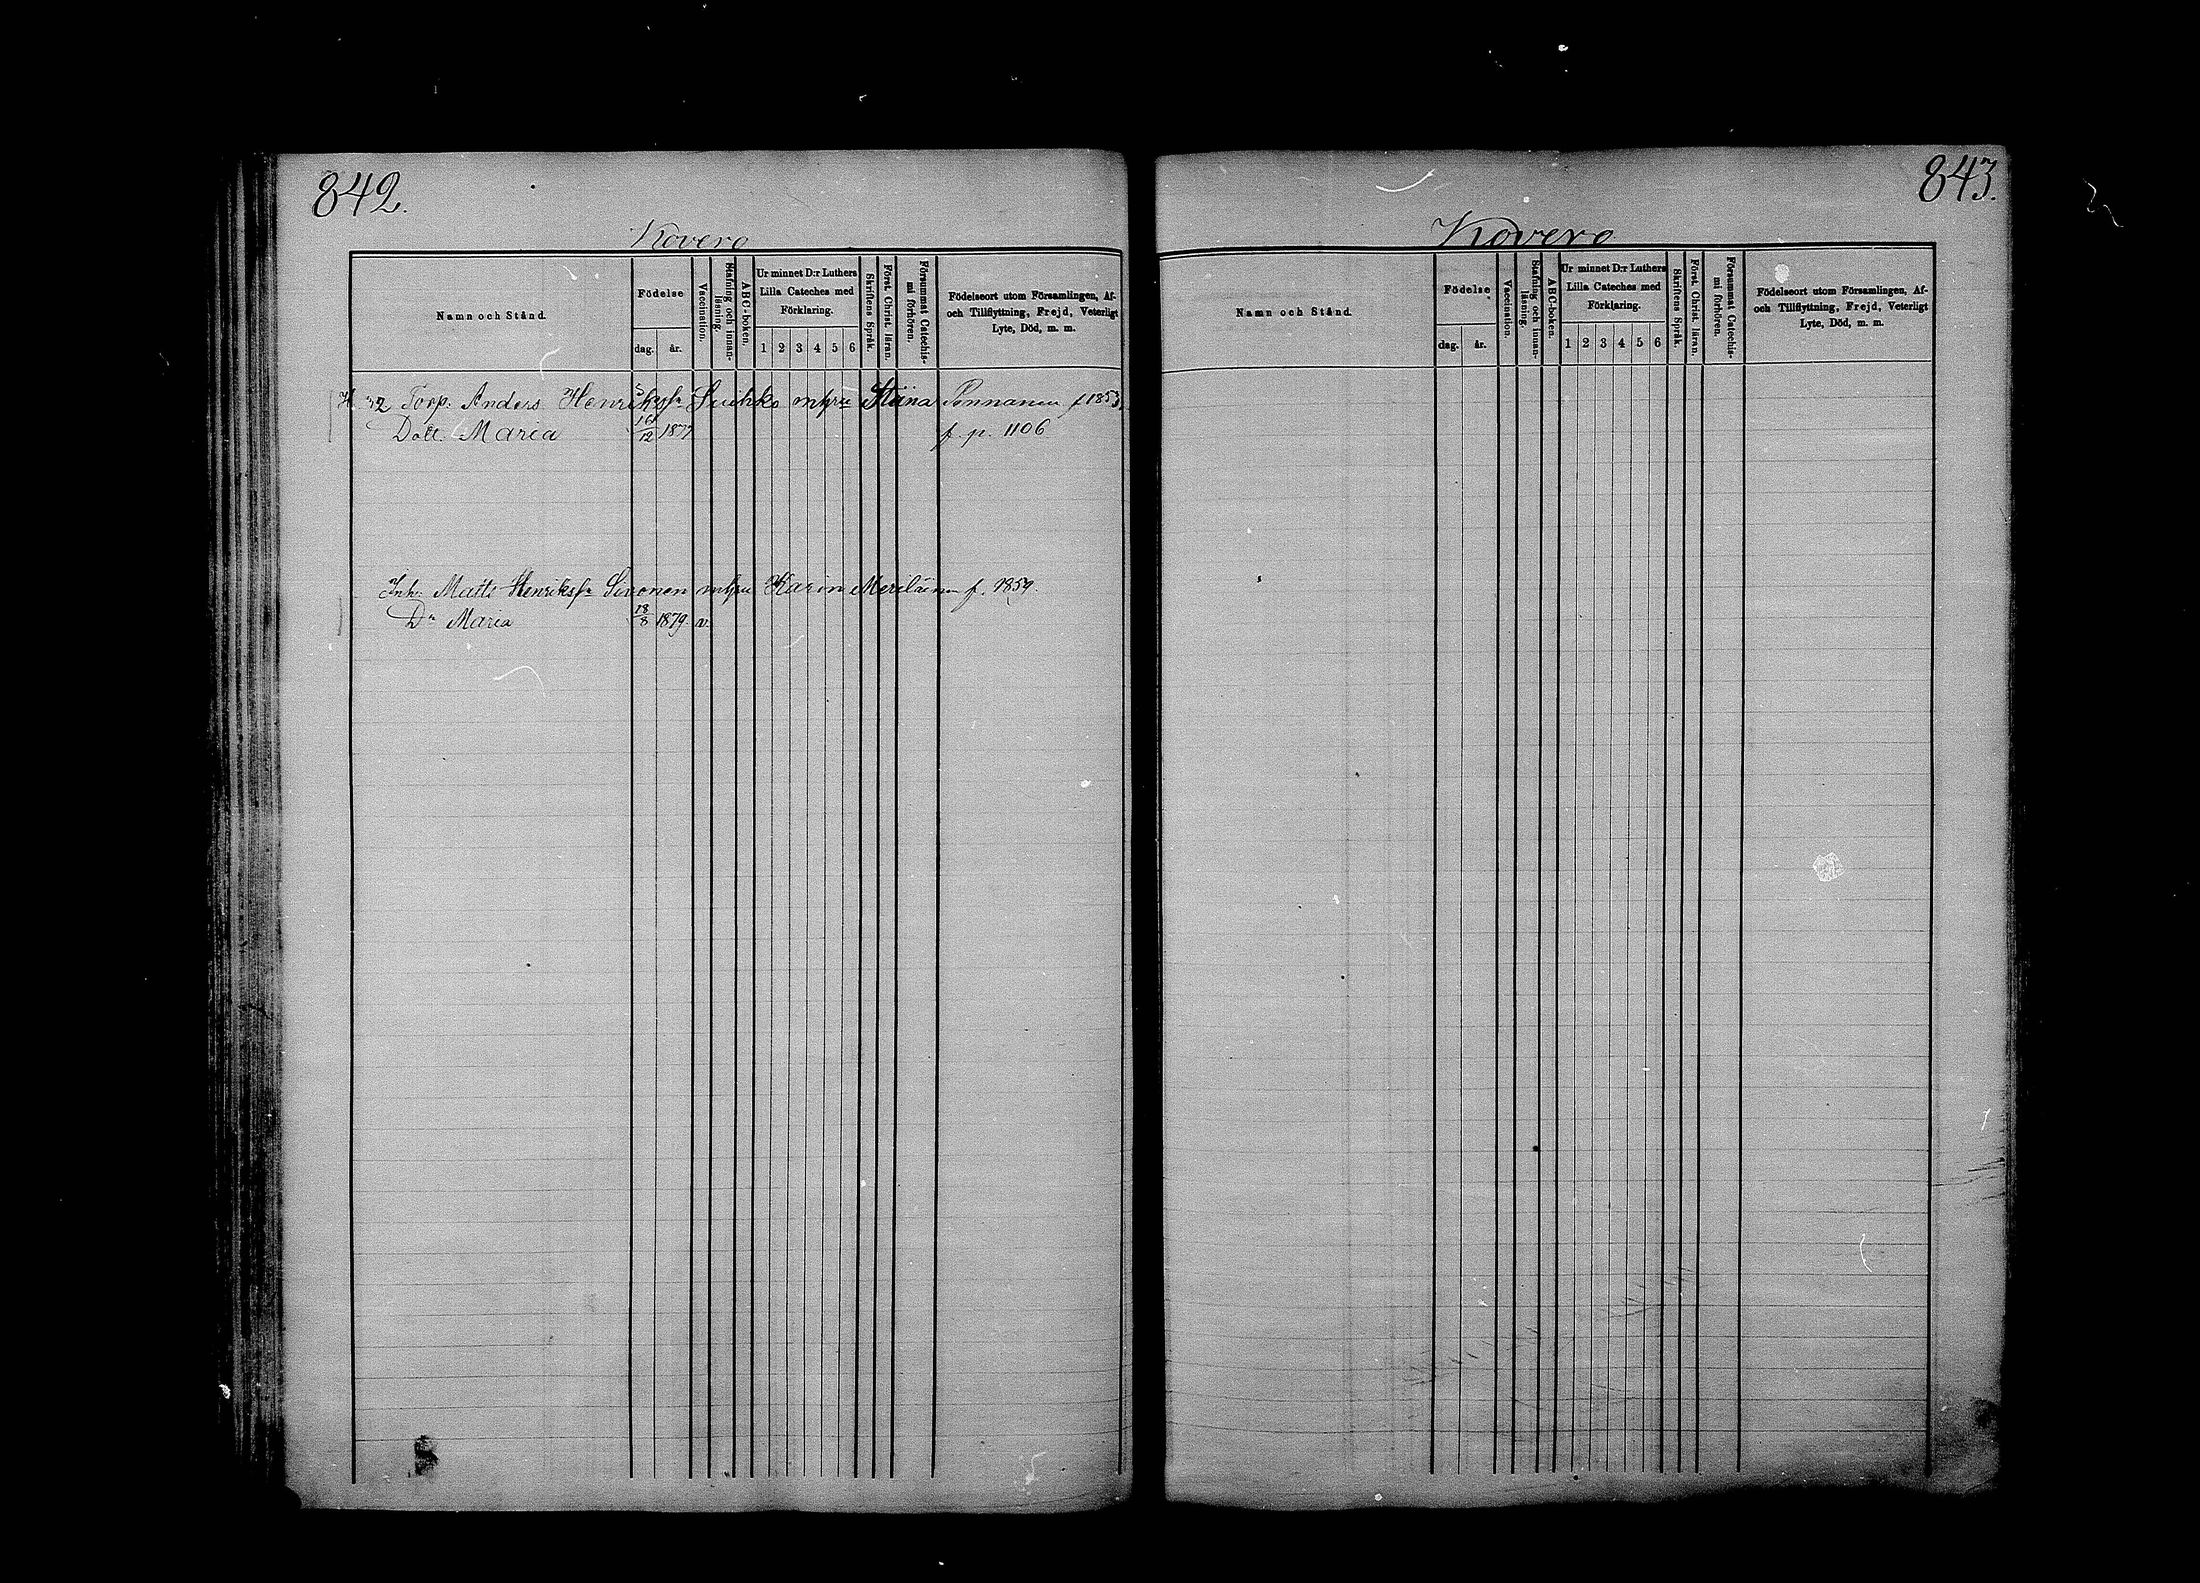 842.
Kovero
Namn och Stånd.
Födelse
dag.
år.
Vaccination.
Stafning och innan-
läsning.
ABC-boken.
Ur minnet D:r Luthers
Lilla Cateches med
Förklaring.
1 2 3 4 5 6
Skriftens Språk.
Först. Christ. läran.
Försummat Catechis-
mi förhören.
Födelseort utom Församlingen, Af-
och Tillflyttning, Frejd, Veterligt
Lyte, Död, m. m.
32 Torp. Anders Henrikss:n Suihko m hru Stina Ponnanen f 1853.
Dott. Maria 16/12 1877 f. p. 1106
Inh. Matts Henriks:n Sivonen m hru Karin Meriläinen f. 1859.
Dr Maria 18/8 1879. v.
843.
Kovero
Namn och Stånd.
Födelse
dag.
år.
Vaccination.
Stafning och innan-
läsning.
ABC-boken.
Ur minnet D:r Luthers
Lilla Cateches med
Förklaring.
1 2 3 4 5 6
Skriftens Språk.
Först. Christ. läran.
Försummat Catechis-
mi förhören.
Födelseort utom Församlingen, Af-
och Tillflyttning, Frejd, Veterligt
Lyte, Död, m. m.